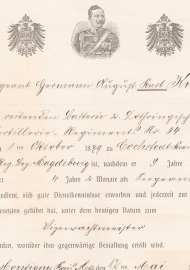 geant Hermann August Karl
reitenden Batterie 2. Lothringisch
rtillerie-Regiments No. 34
ten Oktober 1879 zu Cochstedt
Reg. Bez. Magdeburg ist, nachdem er 9 Jahre
4 Jahre 2 Monate als Sergean
edient, sich gute Dienstkenntnisse erworben und jederzeit zur
esetzten geführt hat, unter dem heutigen Datum zum
Vizewachtmeister
den, worüber ihm gegenwärtige Bestallung ertheilt wird.
ten Mai